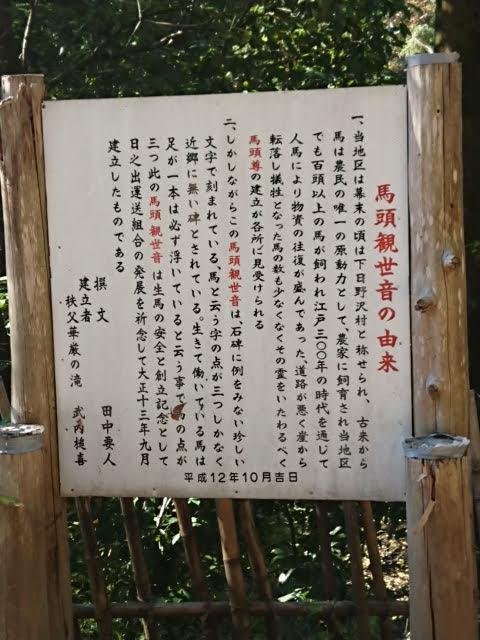 馬頭観世音の由来
一、当地区は幕末の頃は下日野沢村と称せられ、古来から
馬は農民の唯一の原動力として、農家に飼育され当地区
でも百頭以上の馬が飼われ江戸三〇〇年の時代を通じて
人馬により物資の往復が盛んであった、道路が悪く崖から
転落し犠牲となった馬の数も少なくなくその霊をいたわるべく
馬頭尊の建立が各所に見受けられる
二、しかしながらこの馬頭観世音は、石碑に例をみない珍しい
文字で刻まれている、馬と云う字の点が三つしかなく
近郷に無い碑とされている。生きて働いている馬は
足が一本は必ず浮いていると云う事で馬の点が
三つ此の馬頭観世音は生馬の安全と創立記念として
日之出運送組合の発展を祈念して大正十三年九月
建立したものである
撰文 田中要人
建立者
秩父華厳の滝 武内 喜
平成12年10月吉日